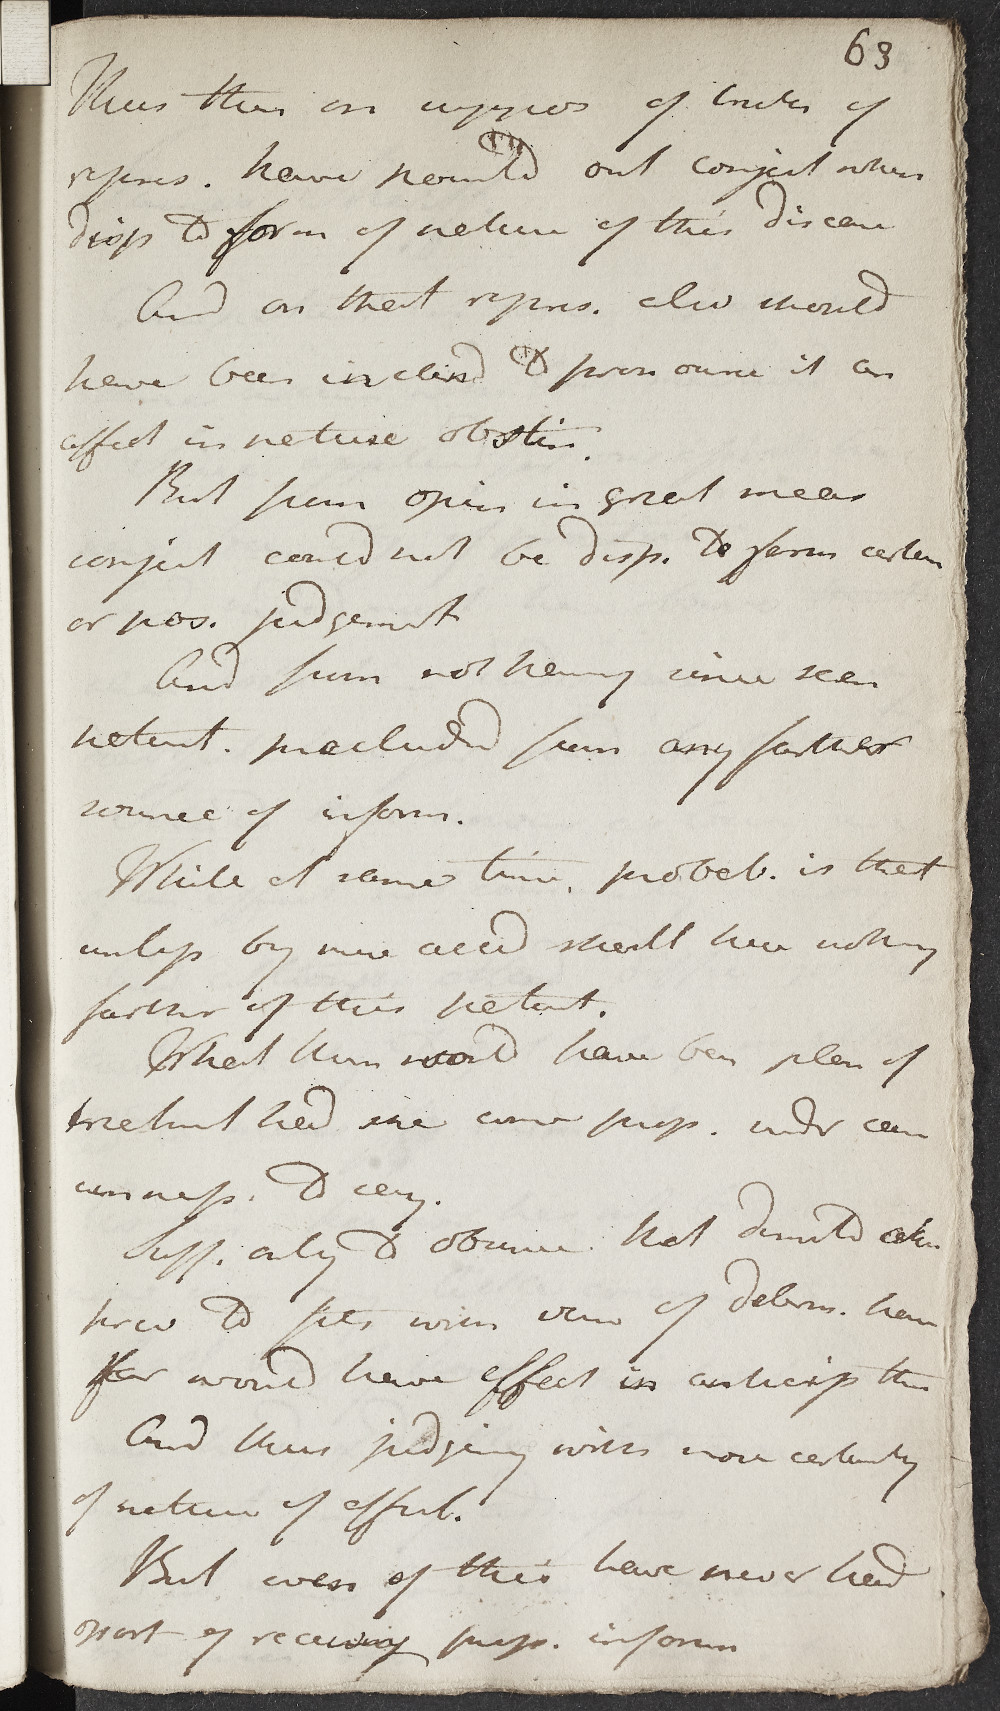 63
Thus then on suppos of truth of
repres. have pointd out conject when
disp to form of nature of this disease
And on that repres. also should
have been inclind to pronounce it an
affect in nature obstin.
But from opin in great meas
conject could not be disp. to form certain
or pos. judgement
And from not having since seen
patient. precluded from any farther
source of inform.
While at same time, probab. is that
unless by mere accid shall hear nothing
farther of this patient.
What then would have been plan of
treatment had she come prop. undr care
unness. to say.
Suff. only to observe that
to fits with view of determ. how
far would have effect in anticip this
And thus judging with more certainty
of nature of affect.
But even of this have never had
opport of receiving prop. inform